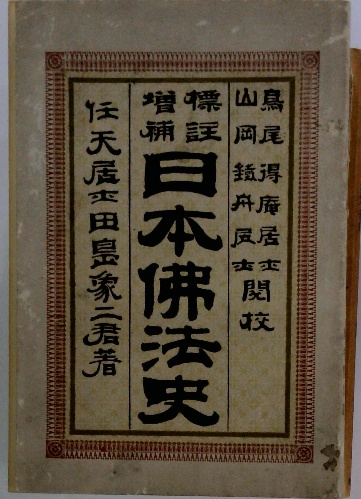 鳥尾得庵居士
山岡鐵舟居士閱校
標註
增補
日本佛法史
任天居士田島象二君著